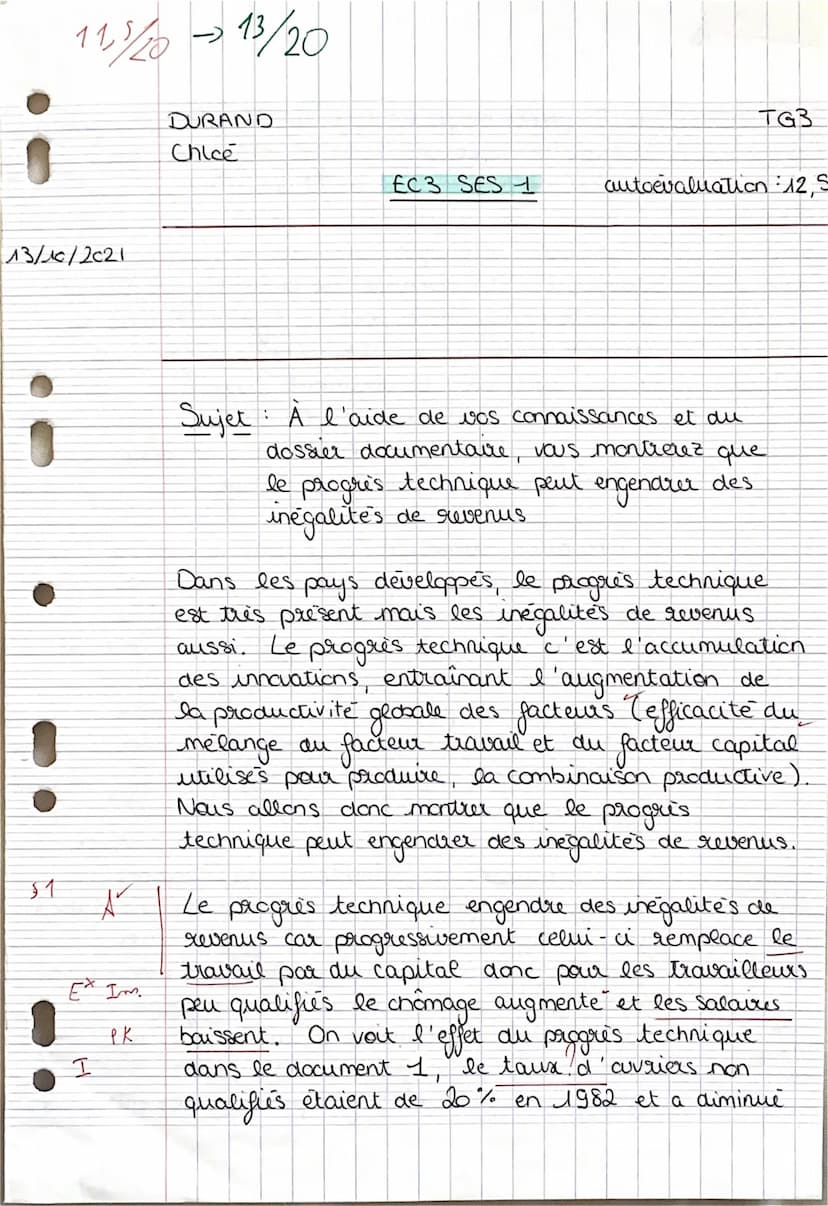 11,5/20 → 13/20
DURAND
TG3
Chloé
EC3 SES 1
autoévaluation : 12,5
13/10/2021
Sujet : À l'aide de vos connaissances et du
dossier documentaire, vous montrerez que
le progrès technique peut engendrer des
inégalités de revenus
Dans les pays développés, le progrès technique
est très présent mais les inégalités de revenus
aussi. Le progrès technique c'est l'accumulation
des innovations, entraînant l'augmentation de
la productivité globale des facteurs (efficacité du
mélange du facteur travail et du facteur capital
utilisés pour produire, la combinaison productive).
Nous allons donc montrer que le progrès
technique peut engendrer des inégalités de revenus.
§1
A
Le progrès technique engendre des inégalités de
revenus car progressivement celui-ci remplace le
travail par du capital donc pour les travailleurs
Ex Im.
peu qualifiés le chômage augmente et les salaires
PK
baissent. On voit l'effet du progrès technique
I
dans le document 1, le taux ? d'ouvriers non
qualifiés étaient de 20% en 1982 et a diminué